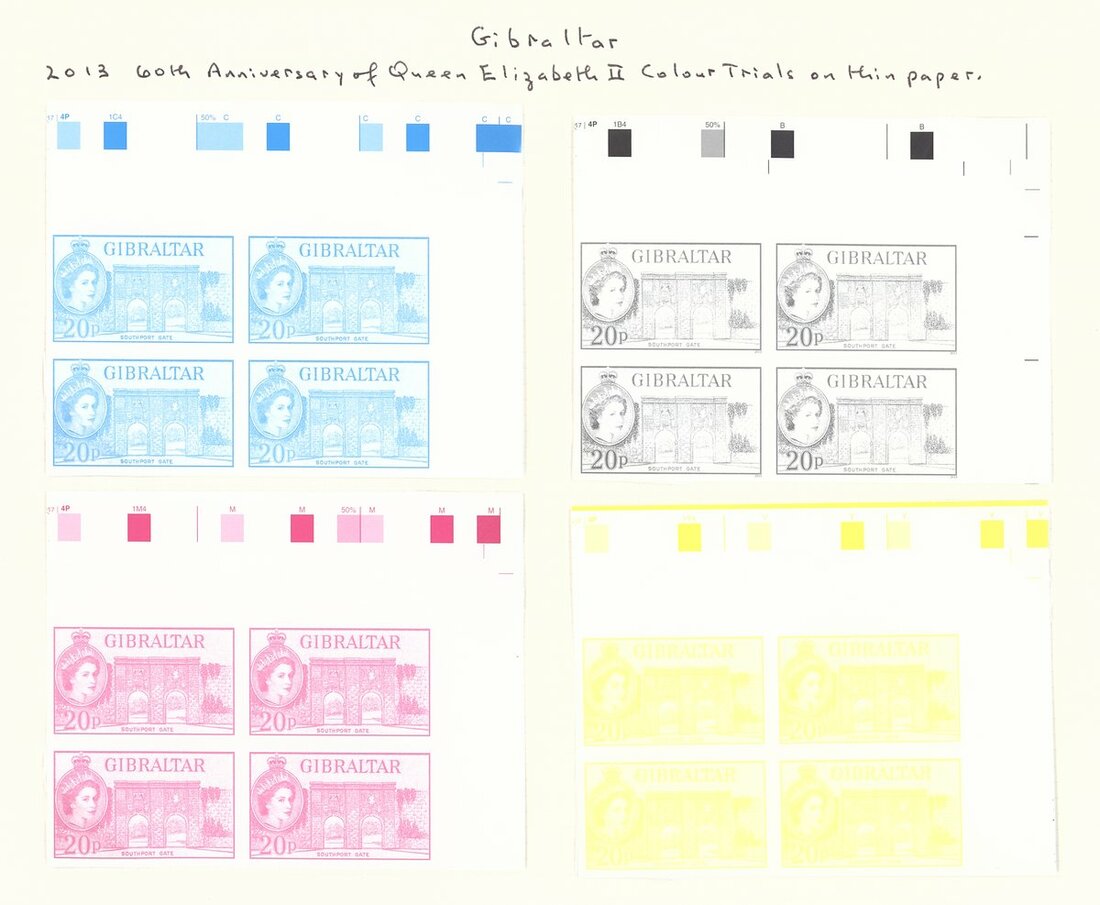 Gibraltar
2013 60th Anniversary of Queen Elizabeth II Colour Trials on thin paper.
57 4P 1C4 50% C C C C C
GIBRALTAR GIBRALTAR
20p 20p
SOUTHPORT GATE SOUTHPORT GATE
GIBRALTAR GIBRALTAR
20p 20p
SOUTHPORT GATE SOUTHPORT GATE
57 4P 1B4 50% B B
GIBRALTAR GIBRALTAR
20p 20p
SOUTHPORT GATE SOUTHPORT GATE
GIBRALTAR GIBRALTAR
20p 20p
SOUTHPORT GATE SOUTHPORT GATE
57 4P 1M4 M M 50% M M M
GIBRALTAR GIBRALTAR
20p 20p
SOUTHPORT GATE SOUTHPORT GATE
GIBRALTAR GIBRALTAR
20p 20p
SOUTHPORT GATE SOUTHPORT GATE
GIBRALTAR GIBRALTAR
20p 20p
GIBRALTAR GIBRALTAR
20p 20p